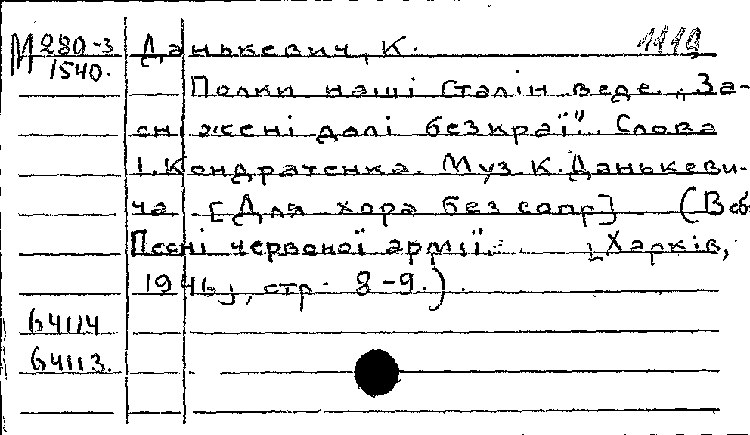 М 280-3 Данькевич, К.
1540.
Полки наші Сталін веде. „За-
сніжені далі безкраї". Слова
І. Кондратенка. Муз К. Данькеви-
ча [Для хора без сопр] (В сб.
Пісні червоної армії. [Харків,
1946], стр. 8-9.).
64114
64113.